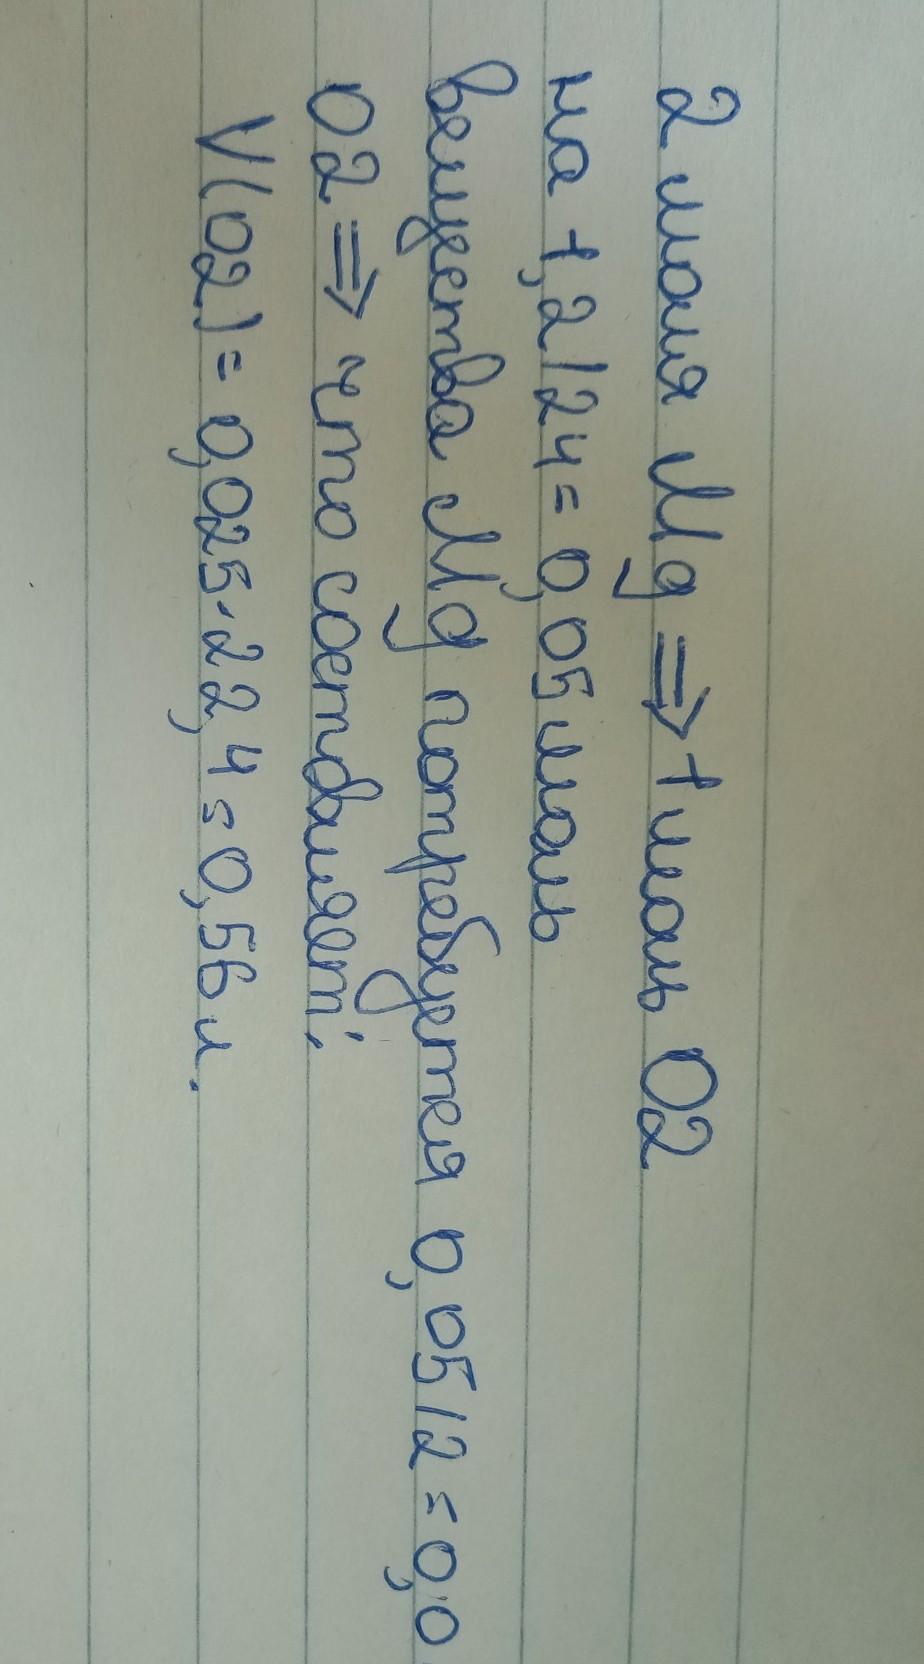 2 моля Mg => 1 моль O2
на 1,2/24=0,05 моль
вещества Mg потребуется 0,05/2=0,0
O2 => что составляет;
V(O2)=0,025·22,4=0,56 л.